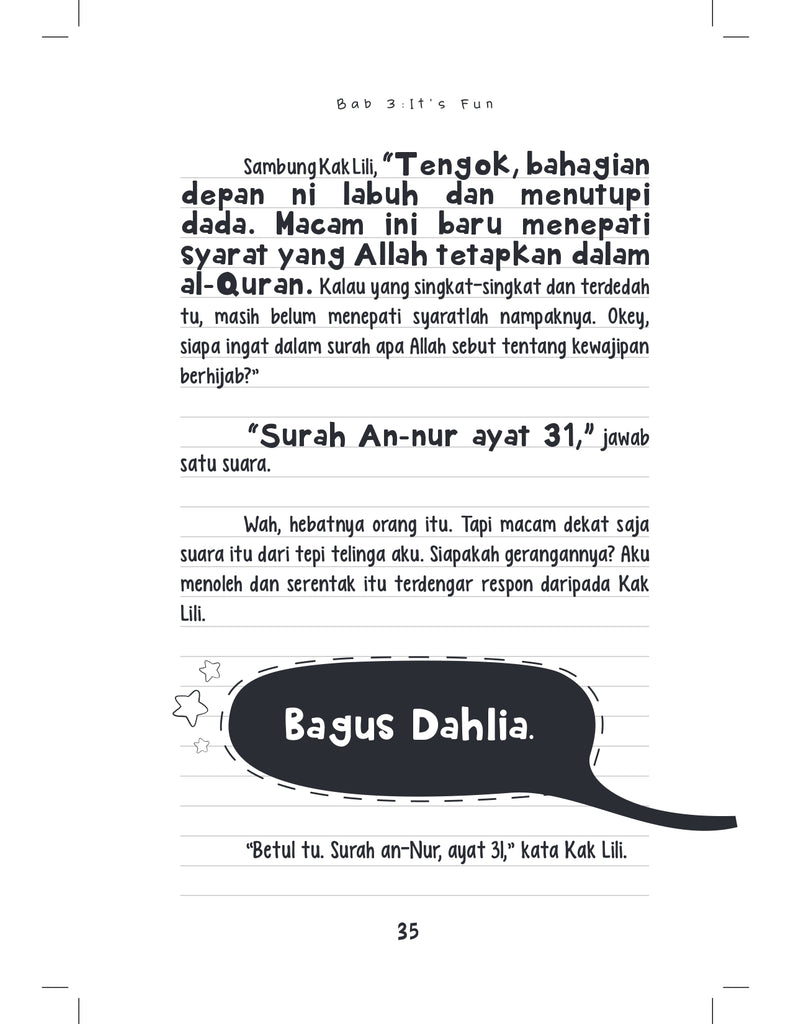 Bab 3:It's Fun
Sambung Kak Lili, “Tengok, bahagian
depan ni labuh dan menutupi
dada. Macam ini baru menepati
syarat yang Allah tetapkan dalam
al-Quran. Kalau yang singkat-singkat dan terdedah
tu, masih belum menepati syaratlah nampaknya. Okey,
siapa ingat dalam surah apa Allah sebut tentang kewajipan
berhijab?”
“Surah An-nur ayat 31,” jawab
satu suara.
Wah, hebatnya orang itu. Tapi macam dekat saja
suara itu dari tepi telinga aku. Siapakah gerangannya? Aku
menoleh dan serentak itu terdengar respon daripada Kak
Lili.
Bagus Dahlia.
“Betul tu. Surah an-Nur, ayat 31,” kata Kak Lili.
35